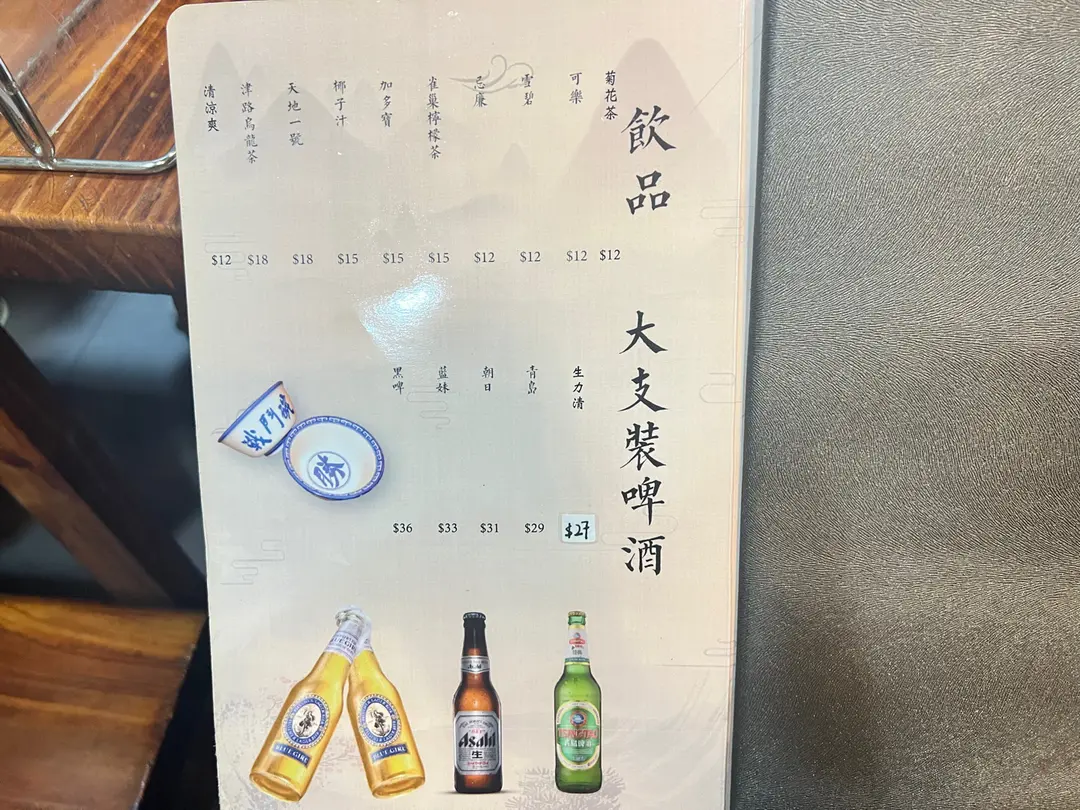 飲品
菊花茶 $12
可樂 $12
雪碧 $12
忌廉 $12
雀巢檸檬茶 $15
加多寶 $15
椰子汁 $15
天地一號 $18
津路烏龍茶 $18
清涼爽 $12
大支裝啤酒
生力清 $27
青島 $29
朝日 $31
藍妹 $33
黑啤 $36
戰鬥碗
勝
BLUE GIRL
BLUE GIRL
Asahi
生
青島啤酒